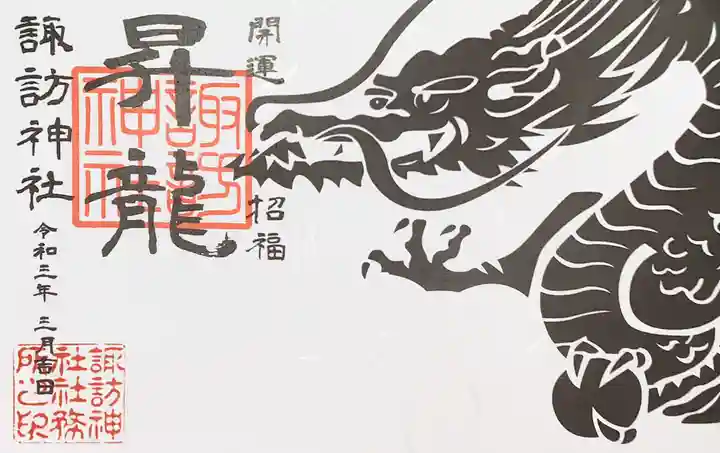 開運 招福
昇龍
諏訪神社
諏訪神社
令和三年 三月吉日
諏訪神
社社務
所之印